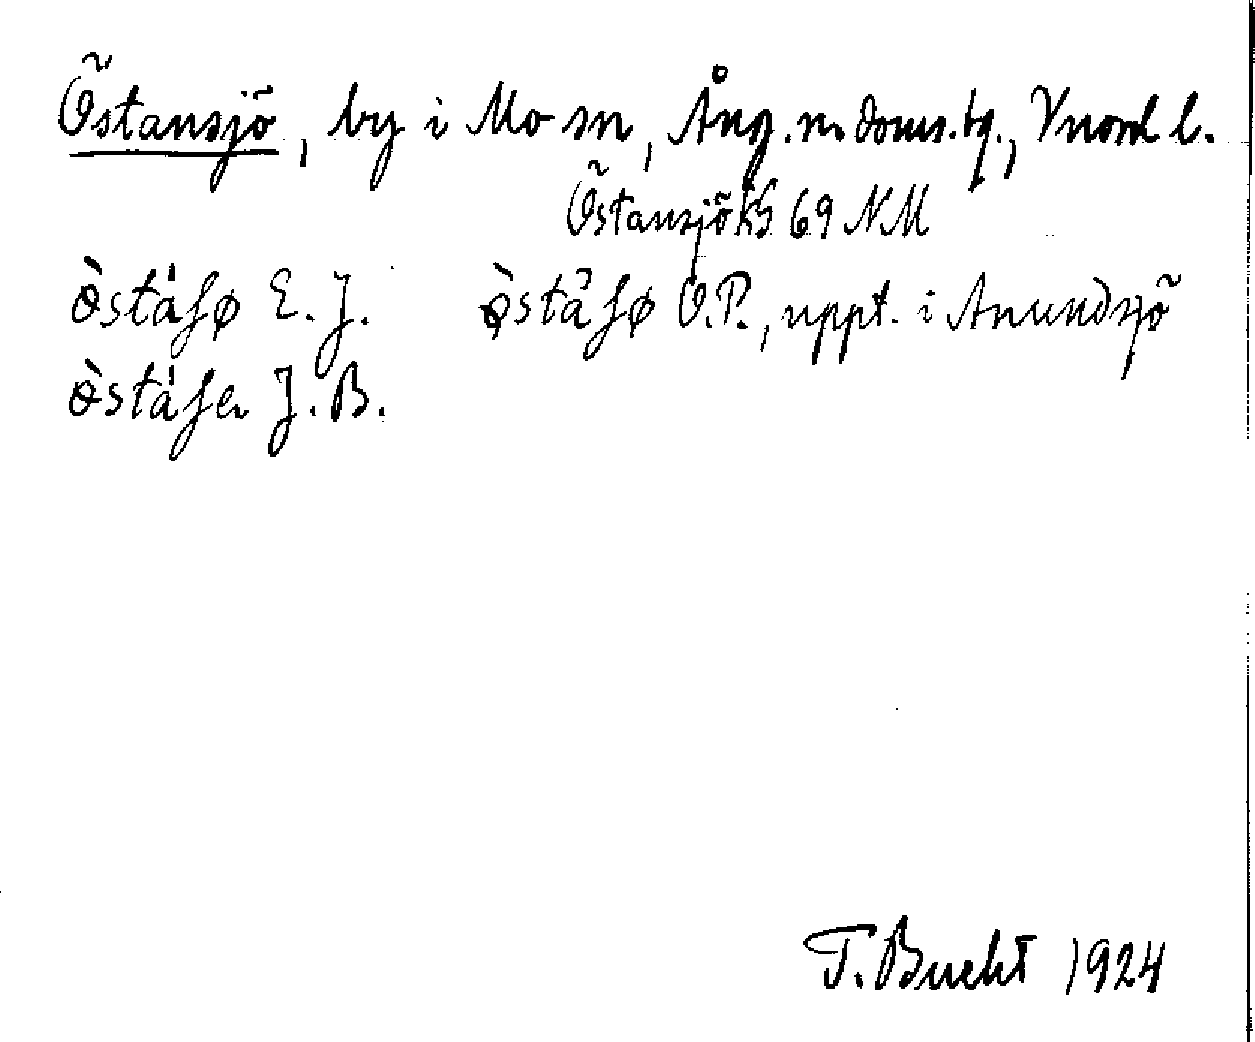 Östansjö, by i Mo sn, Ång. n. doms. tg., Vnorrl l.
Östansjö KB 69 NM
ɵ̀stáʃø E. J. ɵ̀stȧ̉ʃø O.P., uppt. i Anundsjö
ɵ̀stáʃen J. B.
T. Bucht 1924